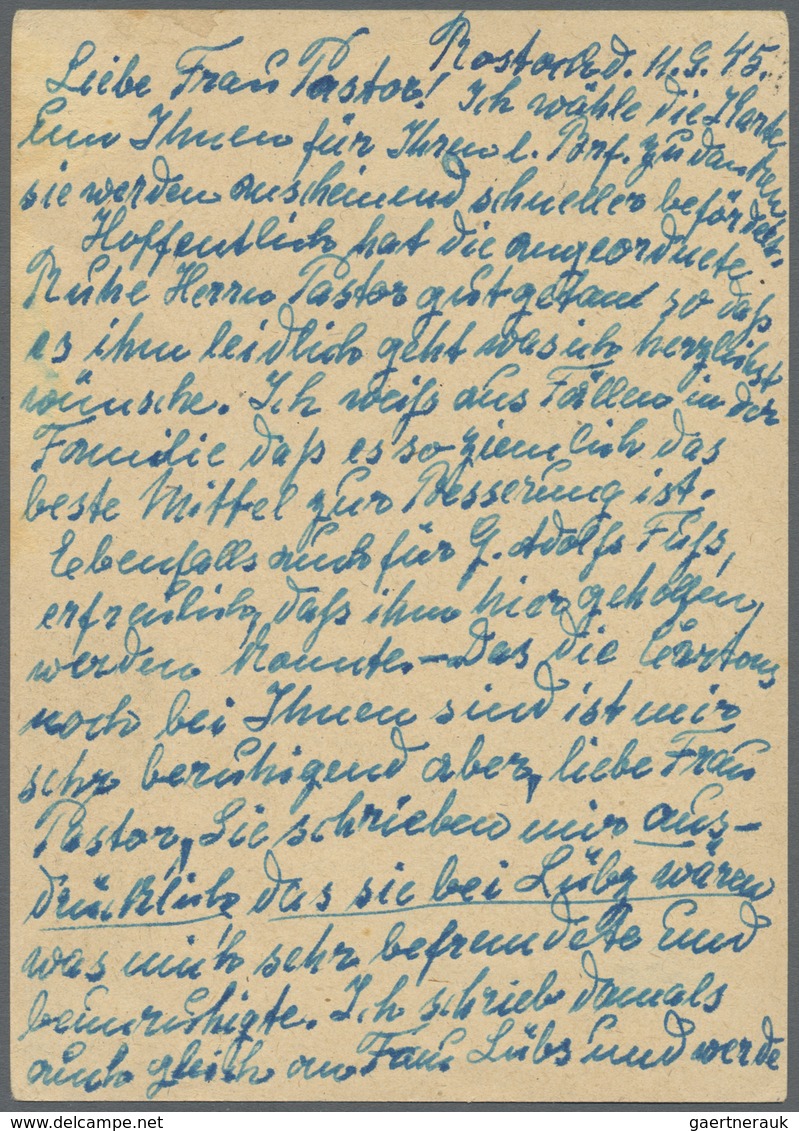 Rostock d. 11.9.45.
Liebe Frau Pastor! Ich wähle die Karte
um Ihnen für Ihren l. Brf. zu danken
sie werden anscheinend schneller befördert.
Hoffentlich hat die angeordnete
Ruhe Herrn Pastor gut getan so daß
es ihm leidlich geht was ich herzlichst
wünsche. Ich weiß aus Fällen in der
Familie daß es so ziemlich das
beste Mittel zur Besserung ist.
Ebenfalls auch für G. Adolfs Fuß,
erfreulich, daß ihm hier geholfen
werden konnte. — Das die Cartons
noch bei Ihnen sind ist mir
sehr beruhigend aber, liebe Frau
Pastor, Sie schrieben mir aus-
drücklich das sie bei Lübz wären
was mich sehr befremdete und
beunruhigte. Ich schrieb damals
auch gleich an Frau Lübs und werde
www.delcampe.net
gaertnerauk